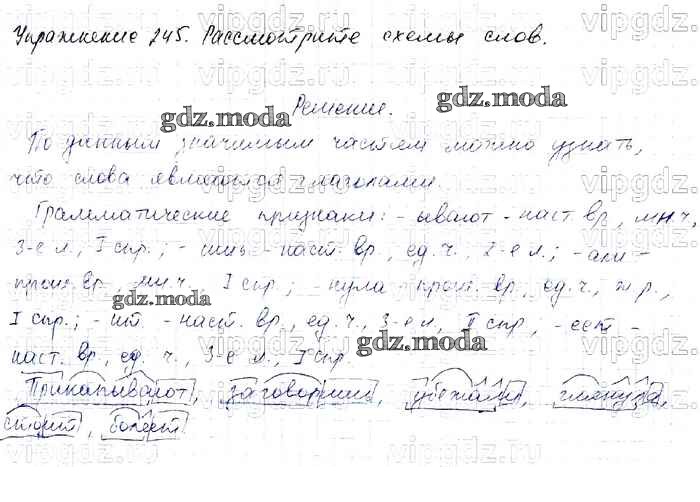 Упражнение 245. Рассмотрите схемы слов.
Решение.
По данным значимым частям можно узнать,
что слова являются глаголами.
Грамматические признаки: -ывают - наст. вр., мн.ч.,
3-е л., I спр.; - - наст. вр., ед. ч., 2-е л.; -али -
прош. вр., мн.ч., I спр.; -нула - прош. вр., ед. ч., ж.р.,
I спр.; -ит - наст. вр., ед. ч., 3-е л., II спр.; -еет -
наст. вр., ед. ч., 3-е л., I спр.
Прикапывают, заговоришь, убежали, глянула,
стоит, болеет
gdz.moda
gdz.moda
gdz.moda
gdz.moda